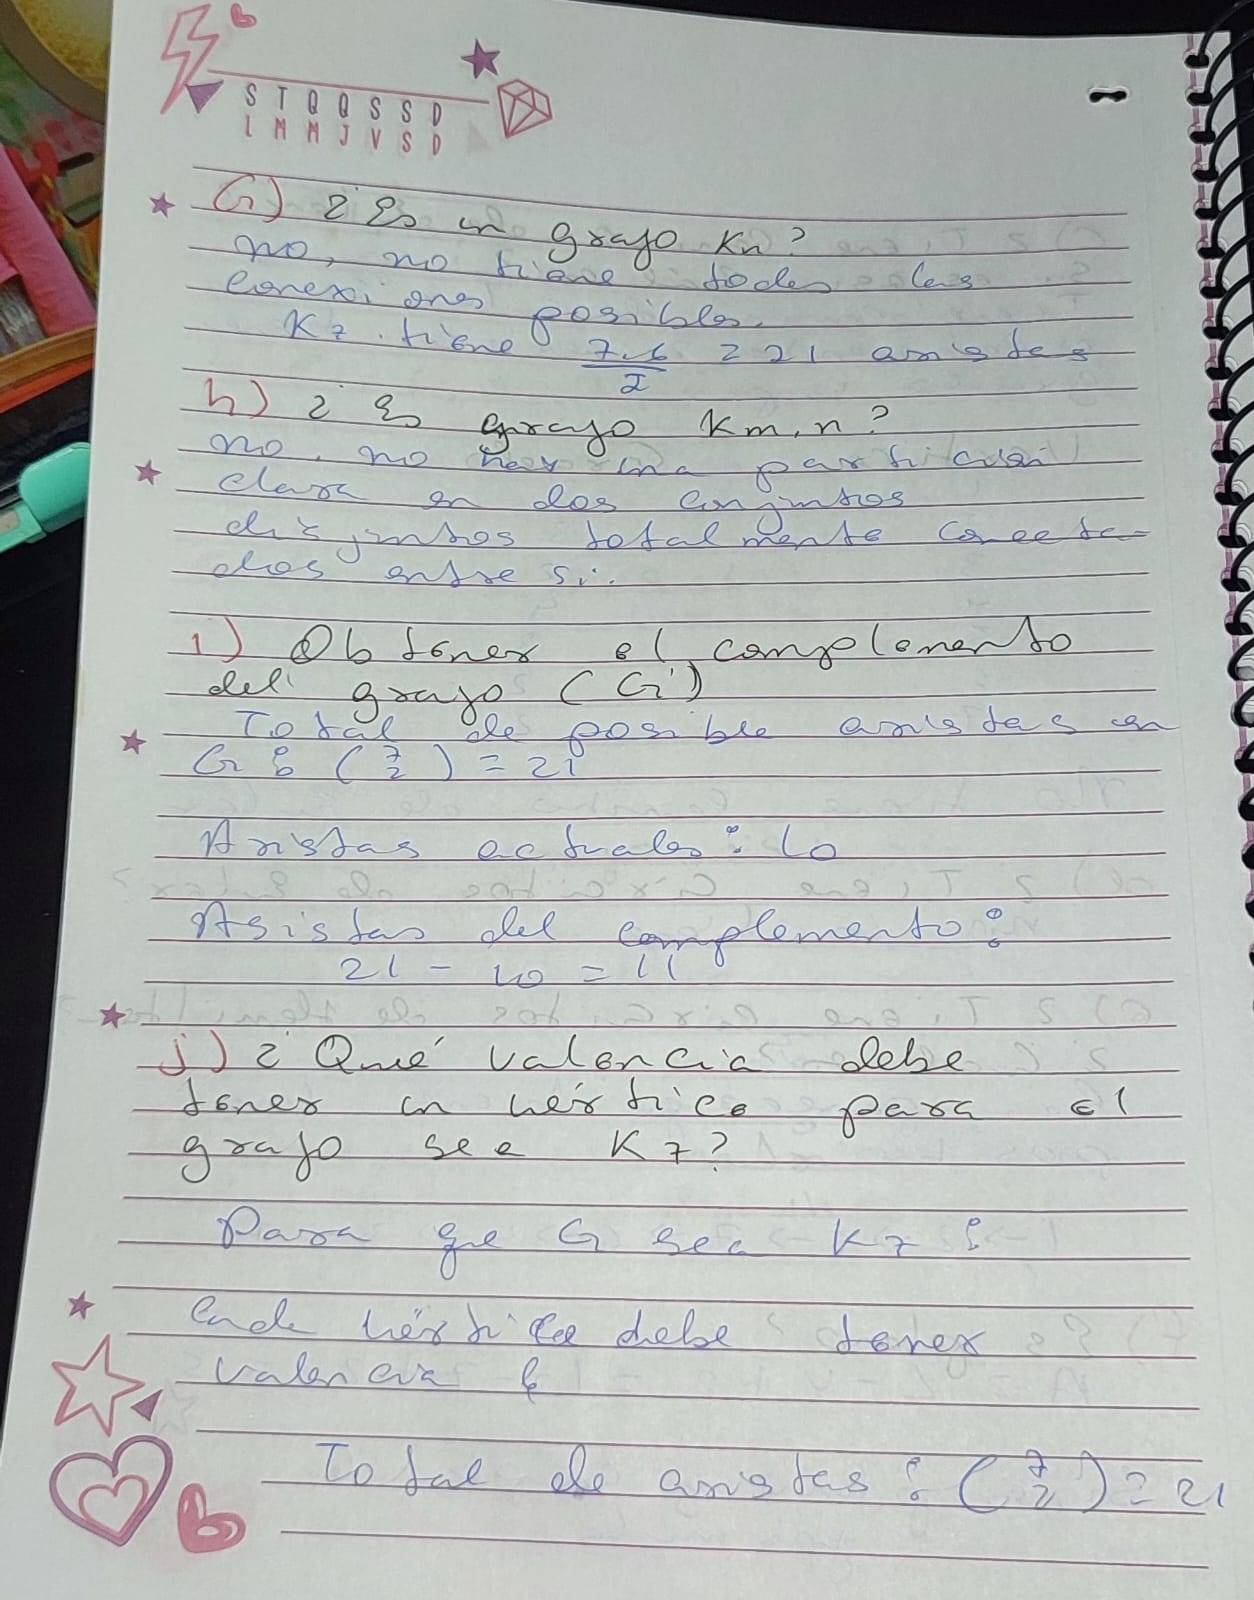 S T Q Q S S D
L M M J V S D
G) ¿Es un grafo Kn?
no, no tiene todas las
conexiones posibles.
K7 tiene 7.6/2 = 21 aristas
h) ¿Es grafo Km,n?
no, no hay una partición
clara en dos conjuntos
disjuntos totalmente conecta-
dos entre si.
i) Obtener el complemento
del grafo (G')
Total de posible aristas en
G: (7 2) = 21
Aristas actuales: 10
Asistas del complemento:
21 - 10 = 11
j) ¿Qué valencia debe
tener un vértice para el
grafo sea K7?
Para que G sea K7:
Cada vértice debe tener
valencia 6
Total de aristas: (7 2) = 21